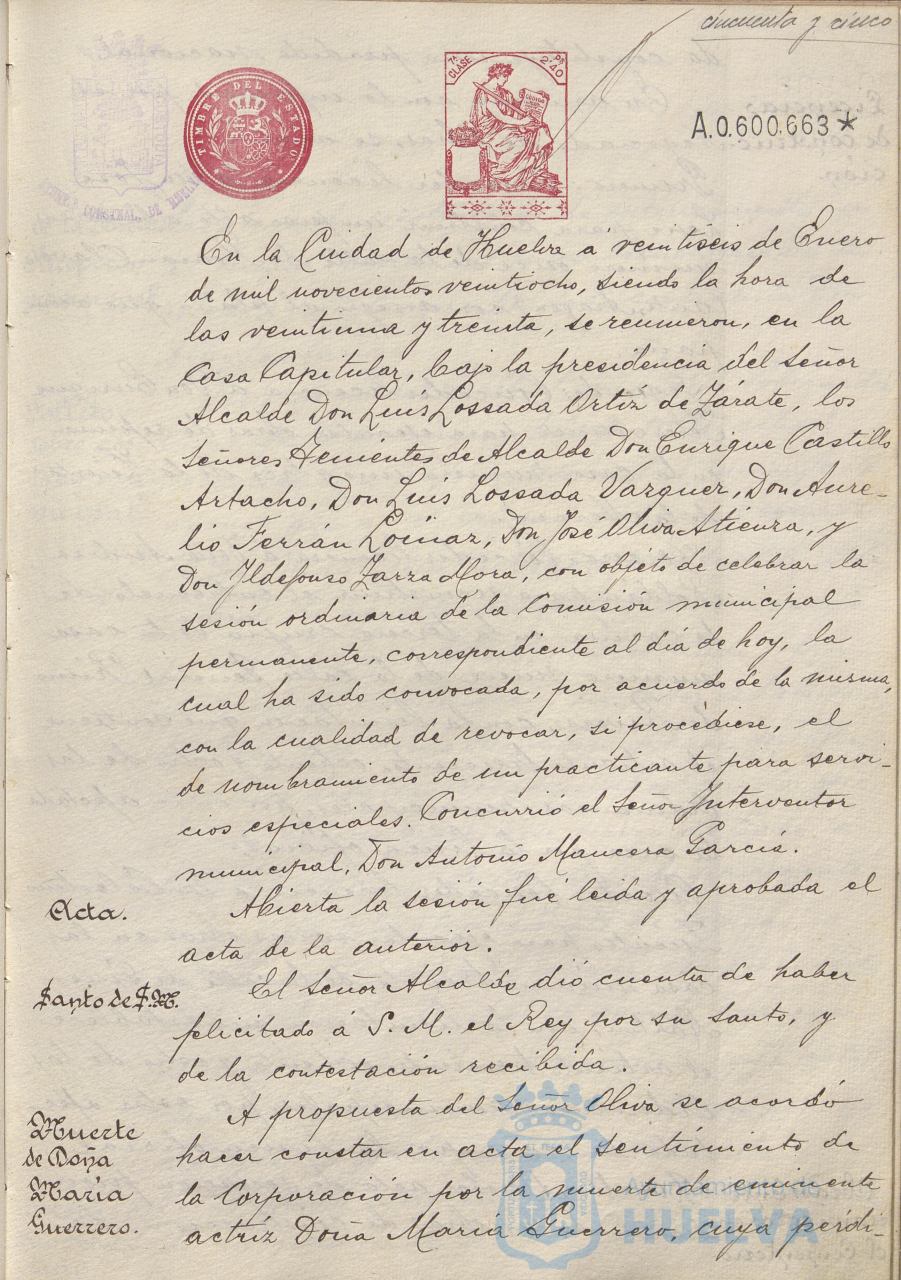 cincuenta y cinco
TIMBRE DEL ESTADO
7ª CLASE
Ps 2'40
A.0.600.663*
En la Ciudad de Huelva á veintiseis de Enero
de mil novecientos veintiocho, siendo la hora de
las veintiuna y treinta, se reunieron, en la
Casa Capitular, bajo la presidencia del Señor
Alcalde Don Luís Lossada Ortíz de Zárate, los
Señores Tenientes de Alcalde Don Enrique Castillo
Artacho, Don Luís Lossada Vazquez, Don Aure-
lio Ferrán Loinaz, Don José Oliva Atienza, y
Don Ildefonso Zarza Mora, con objeto de celebrar la
sesión ordinaria de la Comisión municipal
permanente, correspondiente al día de hoy, la
cual ha sido convocada, por acuerdo de la misma,
con la cualidad de revocar, si procediese, el
de nombramiento de un practicante para servi-
cios especiales. Concurrió el Señor Interventor
municipal, Don Antonio Mancera García.
Acta.
Abierta la sesión fué leida y aprobada el
acta de la anterior.
Santo de S.M.
El Señor Alcalde dió cuenta de haber
felicitado á S. M. el Rey por su Santo, y
de la contestación recibida.
Muerte
de Doña
María
Guerrero.
A propuesta del Señor Oliva se acordó
hacer constar en acta el sentimiento de
la Corporación por la muerte de eminente
actríz Doña María Guerrero, cuya pérdi-
Ayuntamiento de
HUELVA